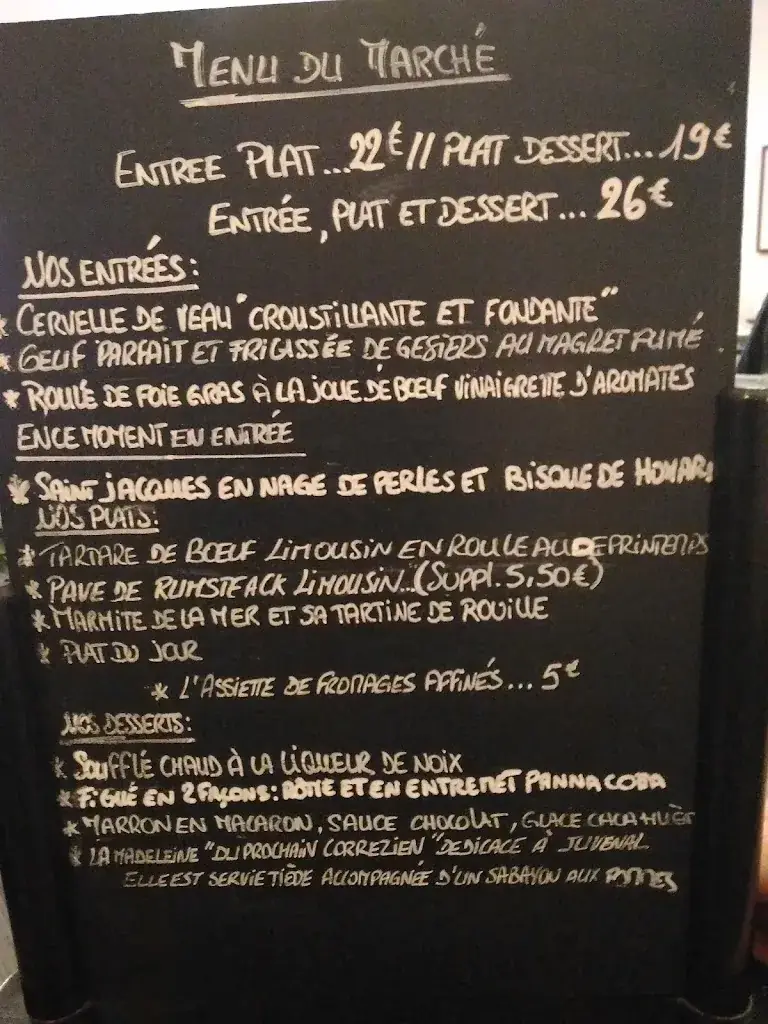 MENU DU MARCHÉ
ENTREE PLAT...22€ // PLAT DESSERT...19€
ENTRÉE, PLAT ET DESSERT... 26€
NOS ENTRÉES:
* CERVELLE DE VEAU "CROUSTILLANTE ET FONDANTE"
* OEUF PARFAIT ET FRICASSÉE DE GESIERS AU MAGRET FUMÉ
* ROULÉ DE FOIE GRAS À LA JOUE DE BOEUF VINAIGRETTE D'AROMATES
EN CE MOMENT EN ENTRÉE
* SAINT JACQUES EN NAGE DE PERLES ET BISQUE DE HOMARD
NOS PLATS:
* TARTARE DE BOEUF LIMOUSIN EN ROULEAU DE PRINTEMPS
* PAVE DE RUMSTEACK LIMOUSIN...(SUPPL. 5,50€)
* MARMITE DE LA MER ET SA TARTINE DE ROUILLE
* PLAT DU JOUR
* L'ASSIETTE DE FROMAGES AFFINÉS... 5€
NOS DESSERTS:
* SOUFFLÉ CHAUD À LA LIQUEUR DE NOIX
* FIGUE EN 2 FAÇONS: RÔTIE ET EN ENTREMET PANNA COTTA
* MARRON EN MACARON, SAUCE CHOCOLAT, GLACE CACAHUÈT
* LA MADELEINE "DU PROCHAIN CORREZIEN" DEDICACE À JUVENAL
ELLE EST SERVIE TIÈDE ACCOMPAGNÉE D'UN SABAYON AUX POMMES